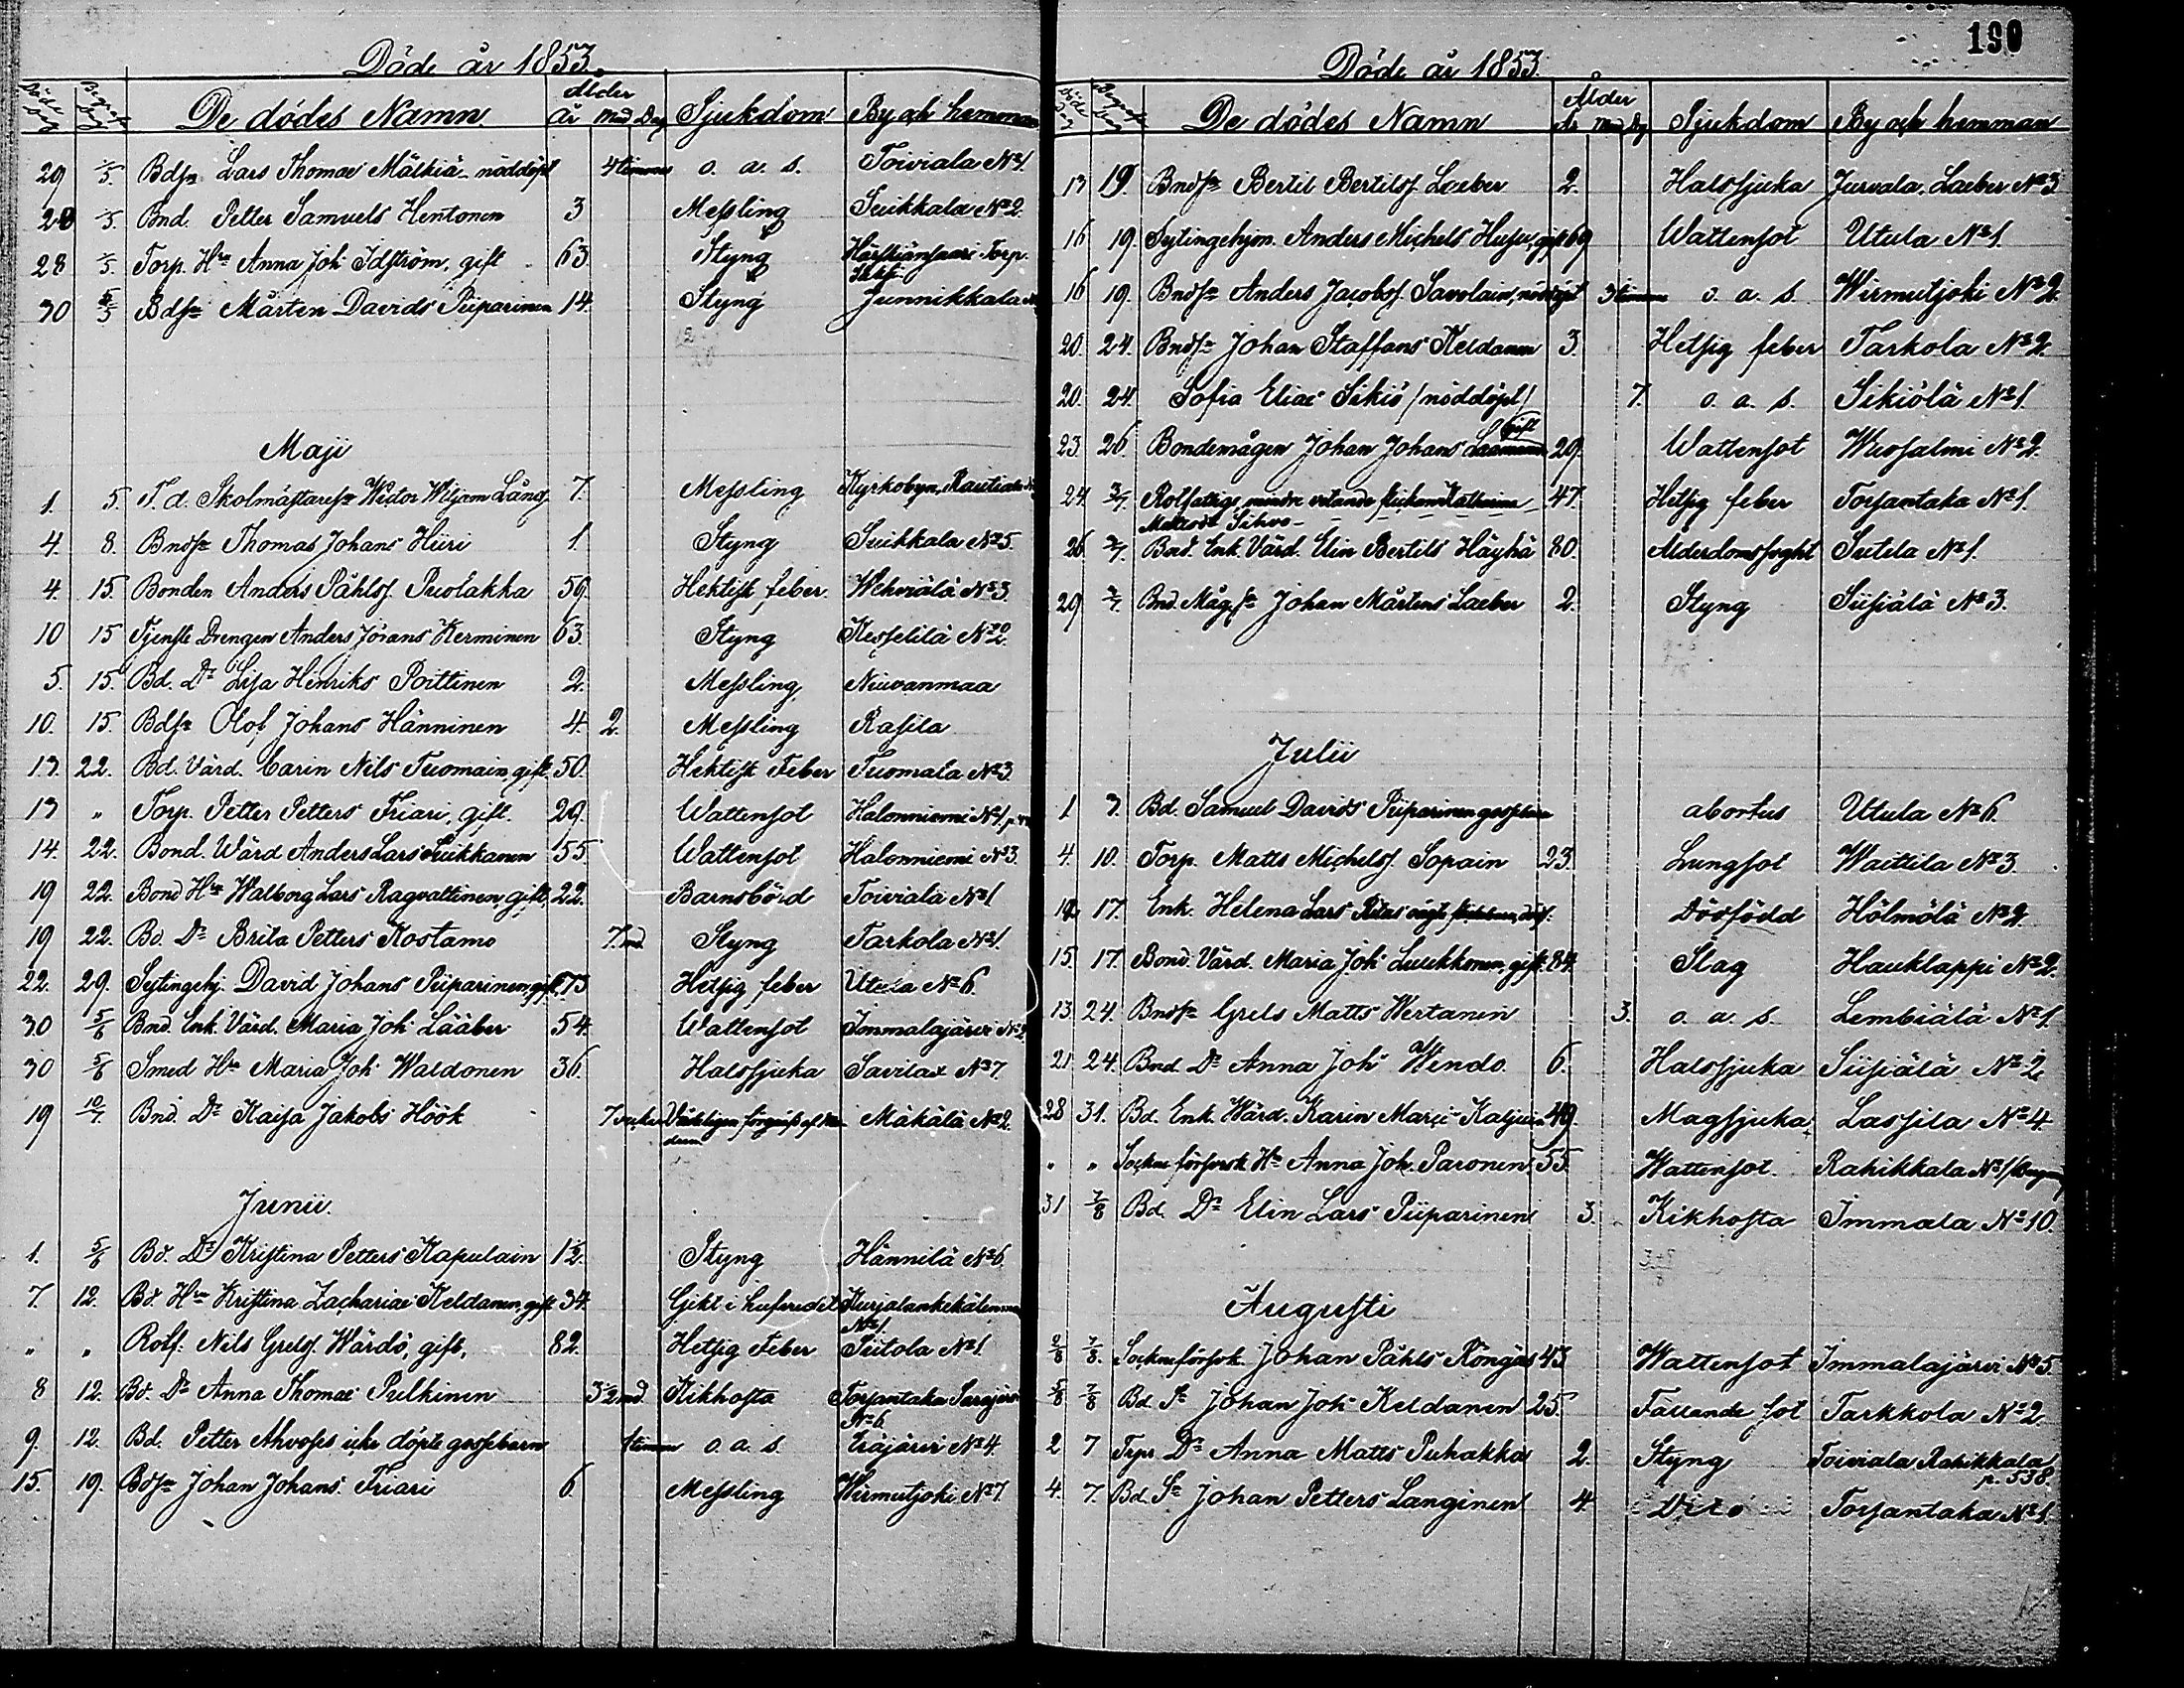 190
Döde år 1853.
Döde dag Begrafn. dag De dödes Namn Ålder år Mnd Dag Sjukdom By och hemman
29 1/5. Bdsn Lars Thomae Mälkiä nöddöpt 4 timmar o. a. s. Toiviala No 1.
28 1/5. Bnd. Petter Samuels Hentonen 3 Messling Suikkala No 2.
28 1/5. Torp. Hu Anna Joh: Idström, gift 63 Styng Härskiänsaari Torp.
30 5/5 Bdsn Mårten Davids Piiparinen 14. Styng Junnikkala
Maji
1. 5. F. d. Skolmästaresn Victor Wiljam Lång 7. Messling Kyrkobyn, Rautiala
4. 8. Bndsn Thomas Johans Hiiri 1. Styng Suikkala No 5.
4. 15. Bonden Anders Påhlss. Puolakka 59. Hektisk feber. Wehviälä No 3.
10 15 Tjenste Drengen Anders Jörans Kerminen 63. Styng Kesselilä No 2.
5. 15. Bd. Dr Lisa Henriks Poittinen 2. Messling Niuvanmaa
10. 15. Bdsn Olof Johans Hänninen 4. 2. Messling Rasila
13 22. Bd. Värd. Carin Nils Tuomain, gift. 50. Hektisk Feber Tuomala No 3.
13 " Torp. Petter Petters Friari, gift. 29. Wattensot Halonniemi No 1.
14. 22. Bond. Wärd Anders Lars Suikkanen 55. Wattensot Halonniemi No 3.
19 22. Bond Hu Walborg Lars Ragvattinen, gift. 22. Barnsbörd Toiviala No 1
19 22. Bd. Dr Brita Petters Kostamo 7. md. Styng Tarkola No 1.
22. 29. Sytingehj. David Johans Piiparinen, gift. 73 Hetsig feber Utula No 6.
30 5/6 Bnd. Enk. Värd. Maria Joh: Lääber 54. Wattensot Immalajärvi No 2
30 5/6 Smed Hu Maria Joh: Waldonen 36. Halssjuka Savilax No 7.
19 10/7. Bnd. Dr Kaisa Jakobs Höök 7 veckor Mäkälä No 2.
Junii.
1. 5/6 Bd. Dr Kristina Petters Kapulain 1 1/2. Styng Hännilä No 6.
7. 12. Bd. Hu Kristina Zachariae Keldanen, gift 34. Gikt i hufvudet
No 1
" " Rotf. Nils Grelss. Wärdö, gift, 82. Hetsig Feber Suitola No 1.
8 12. Bd. Dr Anna Thomae Pulkinen 3 1/2 md. Kikhosta Torsantaka Sarajärvi
No 6
9. 12. Bd. Petter Ahvoses icke döpte gossebarn 1 timme o. a. s. Eräjärvi No 4.
15. 19. Bdsn Johan Johans Friari 6 Messling Wirmutjoki No 7.
Döde år 1853.
Döde Dag Begrafn. dag De dödes Namn Ålder År Mnd Dg Sjukdom By och hemman
13 19. Bndsn Bertil Bertilss. Laeber 2. Halssjuka Jurvala, Laeber No 3
16 19. Sytingehjon. Anders Michels Husu, gift 69 Wattensot Utula No 1.
16 19. Bndsn Anders Jacobss. Savolain, nöddöpt 3 timmar o. a. s. Wirmutjoki No 2.
20. 24. Bndsn Johan Staffans Keldanen 3. Hetsig feber Tarkola No 2.
20. 24. Sofia Eliae Sikiö /nöddöpt/ 7. o. a. s. Sikiölä No 1.
gift
23. 26. Bondemågen Johan Johans Laamanen 29. Wattensot Wuosalmi No 2.
24. 3/7. Rotfattige, mindre vetande flickan Katharina 47. Hetsig feber Torsantaka No 1.
Mattsdr Sihvo
26. 3/7. Bnd. Enk. Värd. Elin Bertils Häyhä 80. Ålderdomssvaghet Sutela No 1.
29 3/7. Bnd. Mågsn Johan Mårtens Laeber 2. Styng Siisiälä No 3.
Julii
1 3. Bd. Samuel Davids Piiparinen gossebarn abortus Utula No 6.
4. 10. Torp. Matts Michelss. Sopain 23. Lungsot Waittila No 3.
17. Enk. Helena Lars Dödfödd Hölmölä No 2.
15. 17. Bond. Värd. Maria Joh: Luukkonen, gift. 84. Slag Hauklappi No 2.
13. 24. Bndsn Grels Matts Wertanen 3. o. a. s. Lembiälä No 1.
21 24. Bnd. Dr Anna Joh: Wendo 6. Halssjuka Siisiälä No 2
28 31. Bd. Enk. Wärd. Karin Marci Kaljuin 49. Magsjuka Lassila No 4
" " Sockneförsvsk. Hu Anna Joh. Paronen 55. Wattensot Rahikkala No 1
31 7/8 Bd. Dr Elin Lars Piiparinen 3. Kikhosta Immala No 10.
Augusti
2/8 7/8. Sockneförsvk. Johan Påhls Röngäs 43. Wattensot Immalajärvi No 5.
5/8 7/8 Bd. Sn Johan Joh: Keldanen 25. Fallande sot Tarkkola No 2.
2 7 Trps Dr Anna Matts Puhakka 2. Styng Toiviala Rahikkala
p. 538.
4. 7. Bd. Sn Johan Petters Langinen 4 Dito Torsantaka No 1.